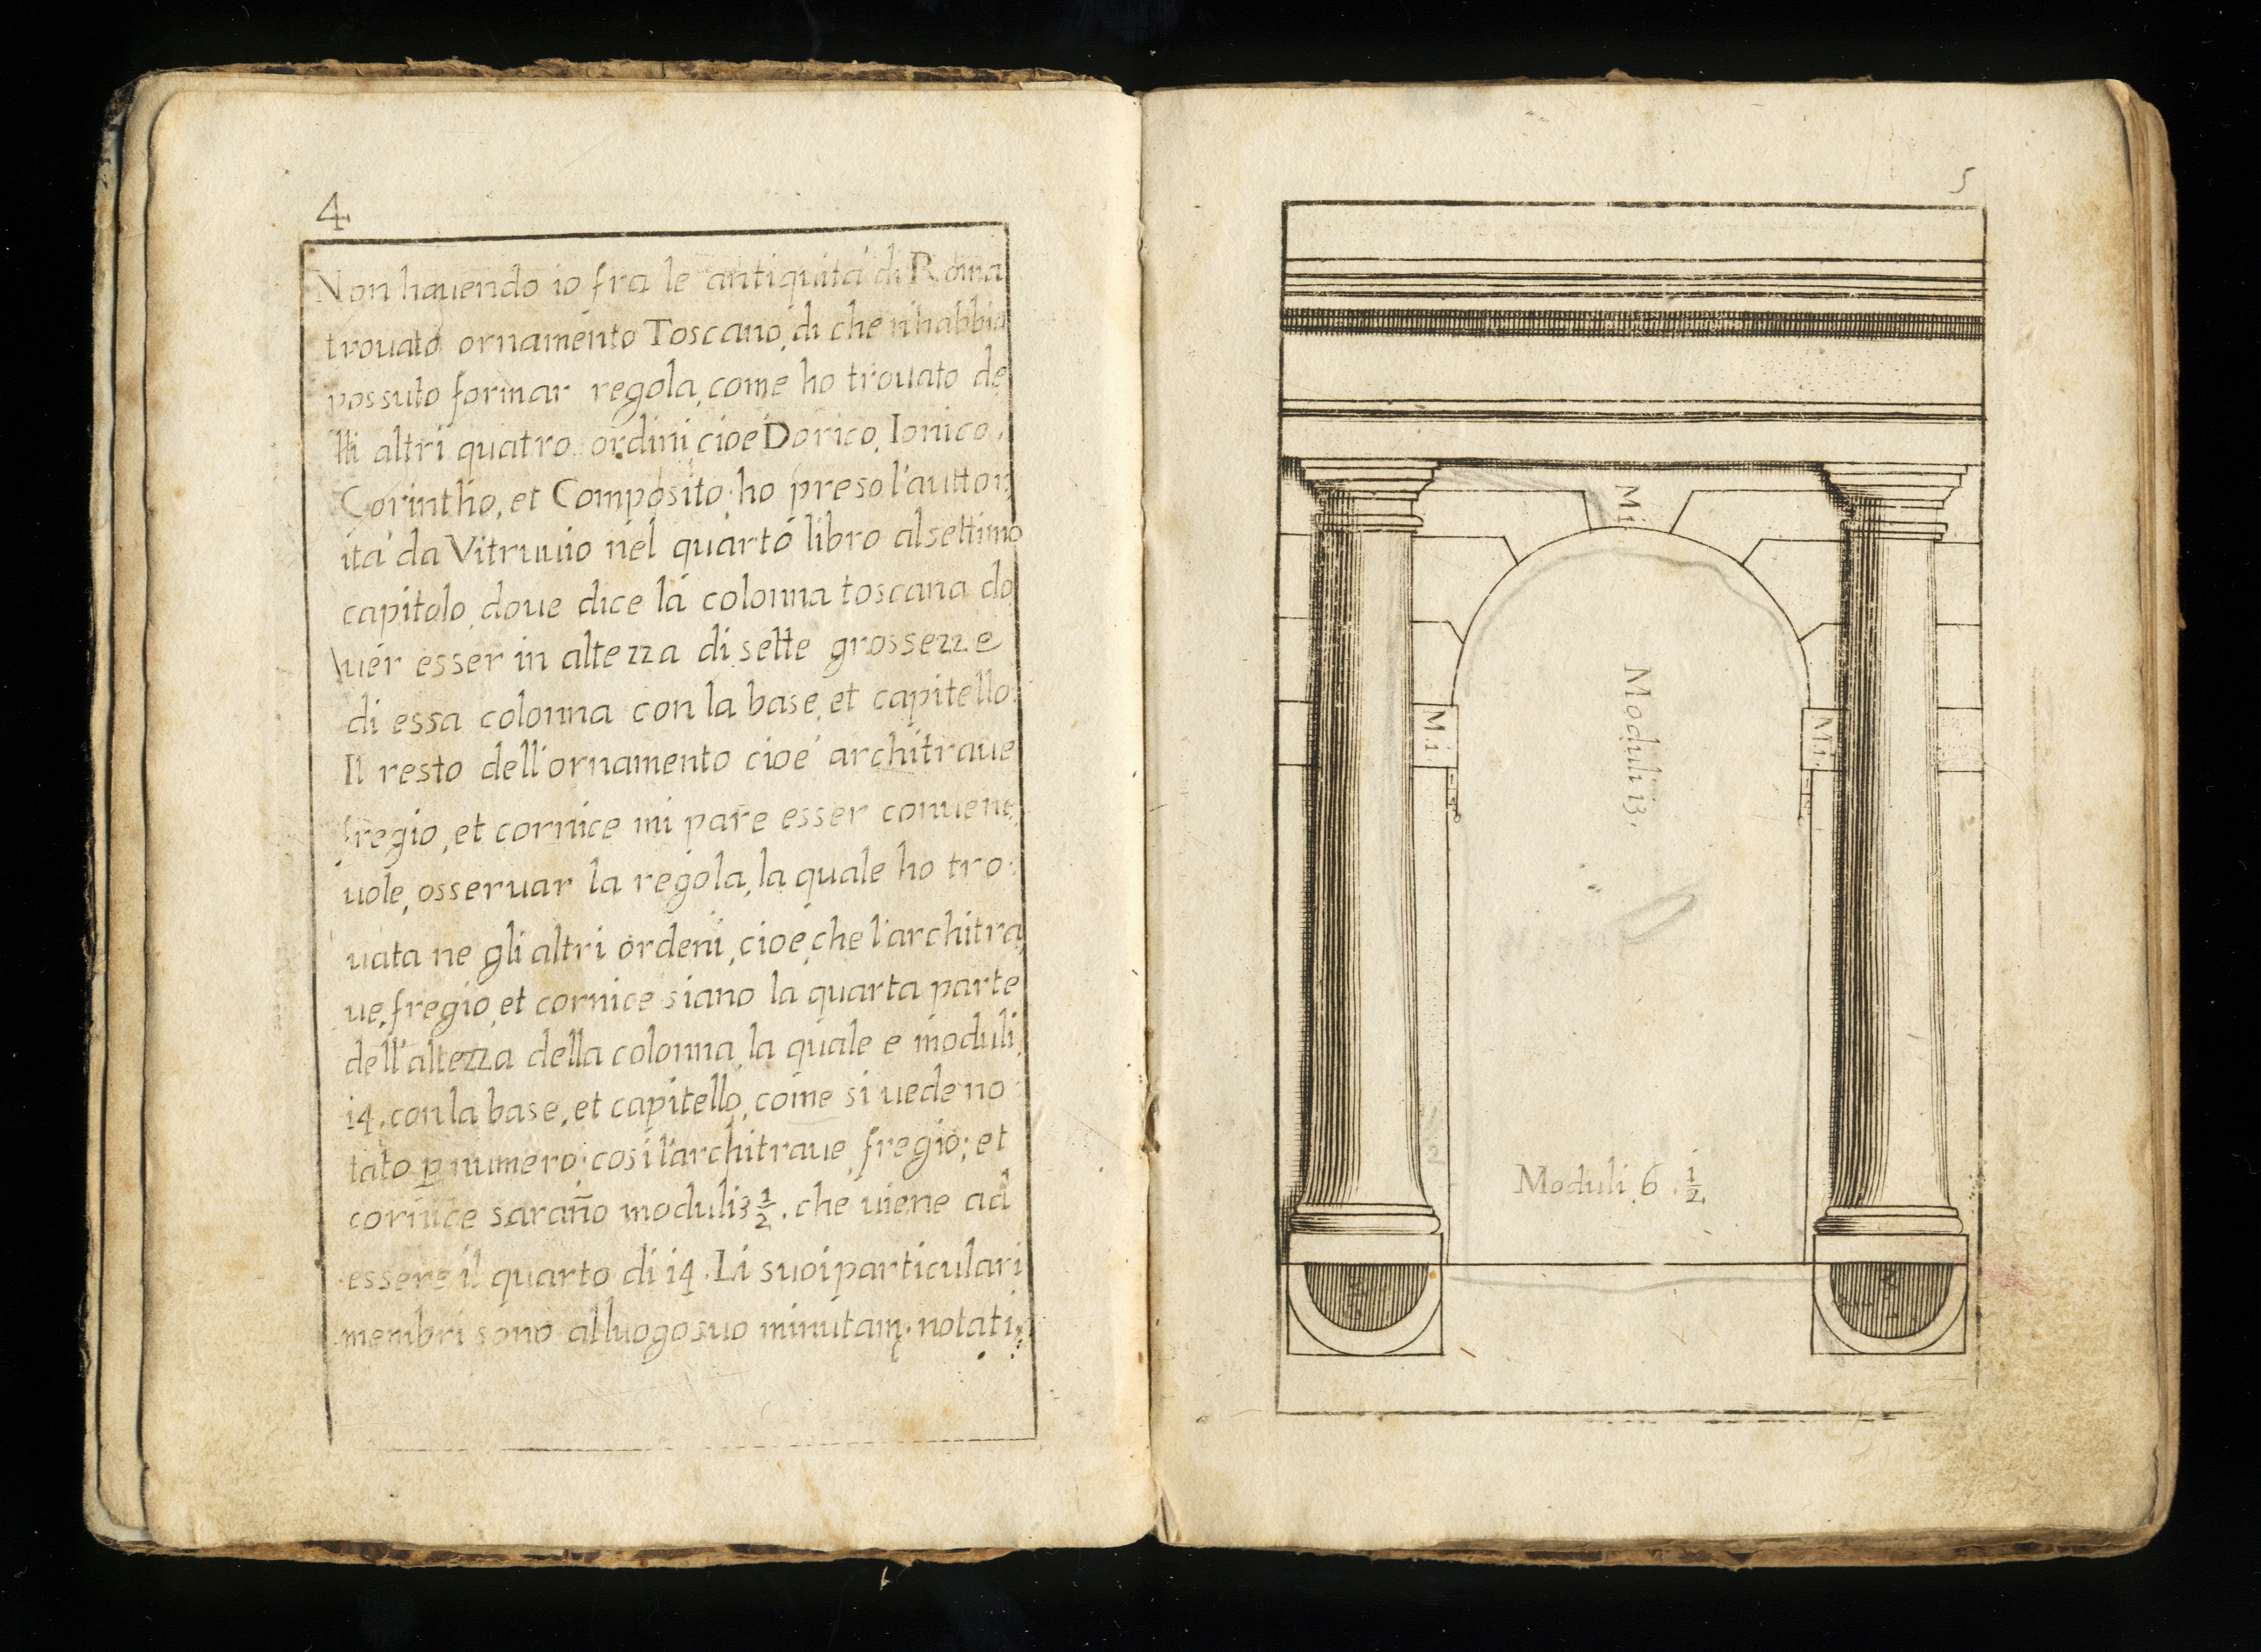 4
Non hauendo io fra le antiquita' di Roma
trouato ornamento Toscano, di che n'habbia
possuto formar regola, come ho trouato de
lli altri quatro ordini cioe Dorico, Ionico,
Corintho, et Composito: ho preso l'auttor,
ita' da Vitruuio nel quarto libro al settimo
capitolo, doue dice la colonna toscana do
uer esser in altezza di sette grossezze
di essa colonna con la base, et capitello:
Il resto dell'ornamento cioe' architraue
fregio, et cornice mi pare esser conuene,
uole, osseruar la regola, la quale ho tro:
uata ne gli altri ordeni, cioe, che l'architra,
ue, fregio, et cornice siano la quarta parte
dell'altezza della colonna, la quale e moduli,
i4. con la base, et capitello, come si uede no
tato ꝑ numero: cosi l'architraue, fregio; et
cornice sarañо moduli 3 1/2. che uiene ad
essere il quarto di i4. Li suoi particulari
membri sono al luogo suo minutam̨. notati.
5
M i.
M. i.
M. i.
Moduli i3.
Moduli. 6. i/2